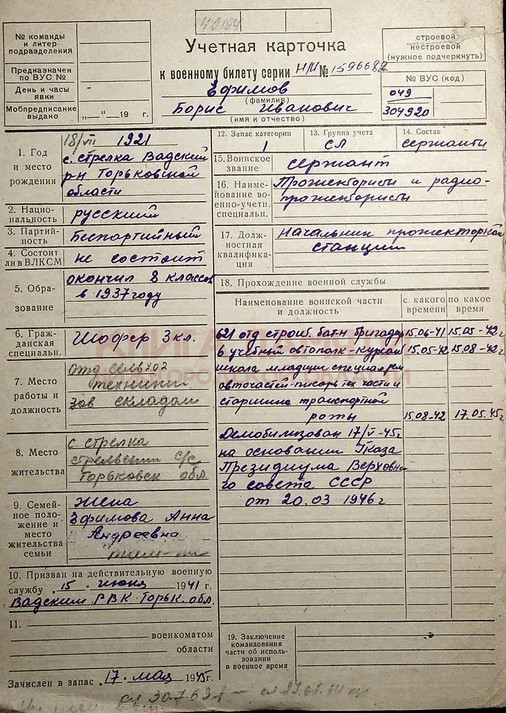 № команды
и литер
подразделения
Предназначен
по ВУС №
День и часы
явки
Мобпредписание
выдано „—“ —19 г.
Учетная карточка
к военному билету серии НИ № 1596682
Ефимов
(фамилия)
Борис Иванович
(имя и отчество)
строевой
нестроевой
(нужное подчеркнуть)
№ ВУС (код)
049
304920
1. Год
и место
рождения
18/VII 1921
с. стрелка Вадский
р-н Горьковской
области
2. Нацио-
нальность
русский
3. Партий-
ность
беспартийный
4. Состоит
ли в ВЛКСМ
не состоит
5. Обра-
зование
окончил 8 классов
в 1937 году
6. Граж-
данская
специальн.
Шофер 3 кл.
7. Место
работы и
должность
отд сельхоз
техники
зав складом
8. Место
жительства
с. стрелка
стрельский с/с
Горьковск обл.
9. Семей-
ное поло-
жение и
место
жительства
семьи
Жена
Ефимова Анна
Андреевна
10. Призван на действительную военную
службу 15 июня 1941 г.
Вадским РВК Горьк. обл.
11.
военкоматом
области
Зачислен в запас 17 мая 1945 г.
12. Запас категории
1
13. Группа учета
СА
14. Состав
сержанты
15. Воинское
звание
сержант
16. Наиме-
нование во-
енно-учетн.
специальн.
Прожектористы и радио-
прожектористы
17. Долж-
ностная
квалифика-
ция
Начальник прожекторной
станции
18. Прохождение военной службы
Наименование воинской части
и должность
с какого
времени
по какое
время
621 отд строит. бат-н бригадир 15.06-41 15.05-42 г
6 учебный автополк-курсант 15.05-42 15.08-42 г.
школа младших специалистов
авточастей-писарь тех части и
старшина транспортной
роты 15.08-42 17.05.45 г
Демобилизован 17/V-45 г.
на основании Указа
Президиума Верховно
го совета СССР
от 20.03 1946 г
19. Заключение
командования
части об исполь-
зовании
в военное время